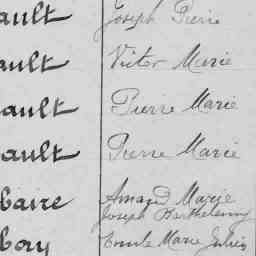 ault Joseph Pierre
ault Victor Marie
ault Pierre Marie
ault Pierre Marie
baire Amand Marie
Joseph Barthélemy
bay Emile Marie Julien